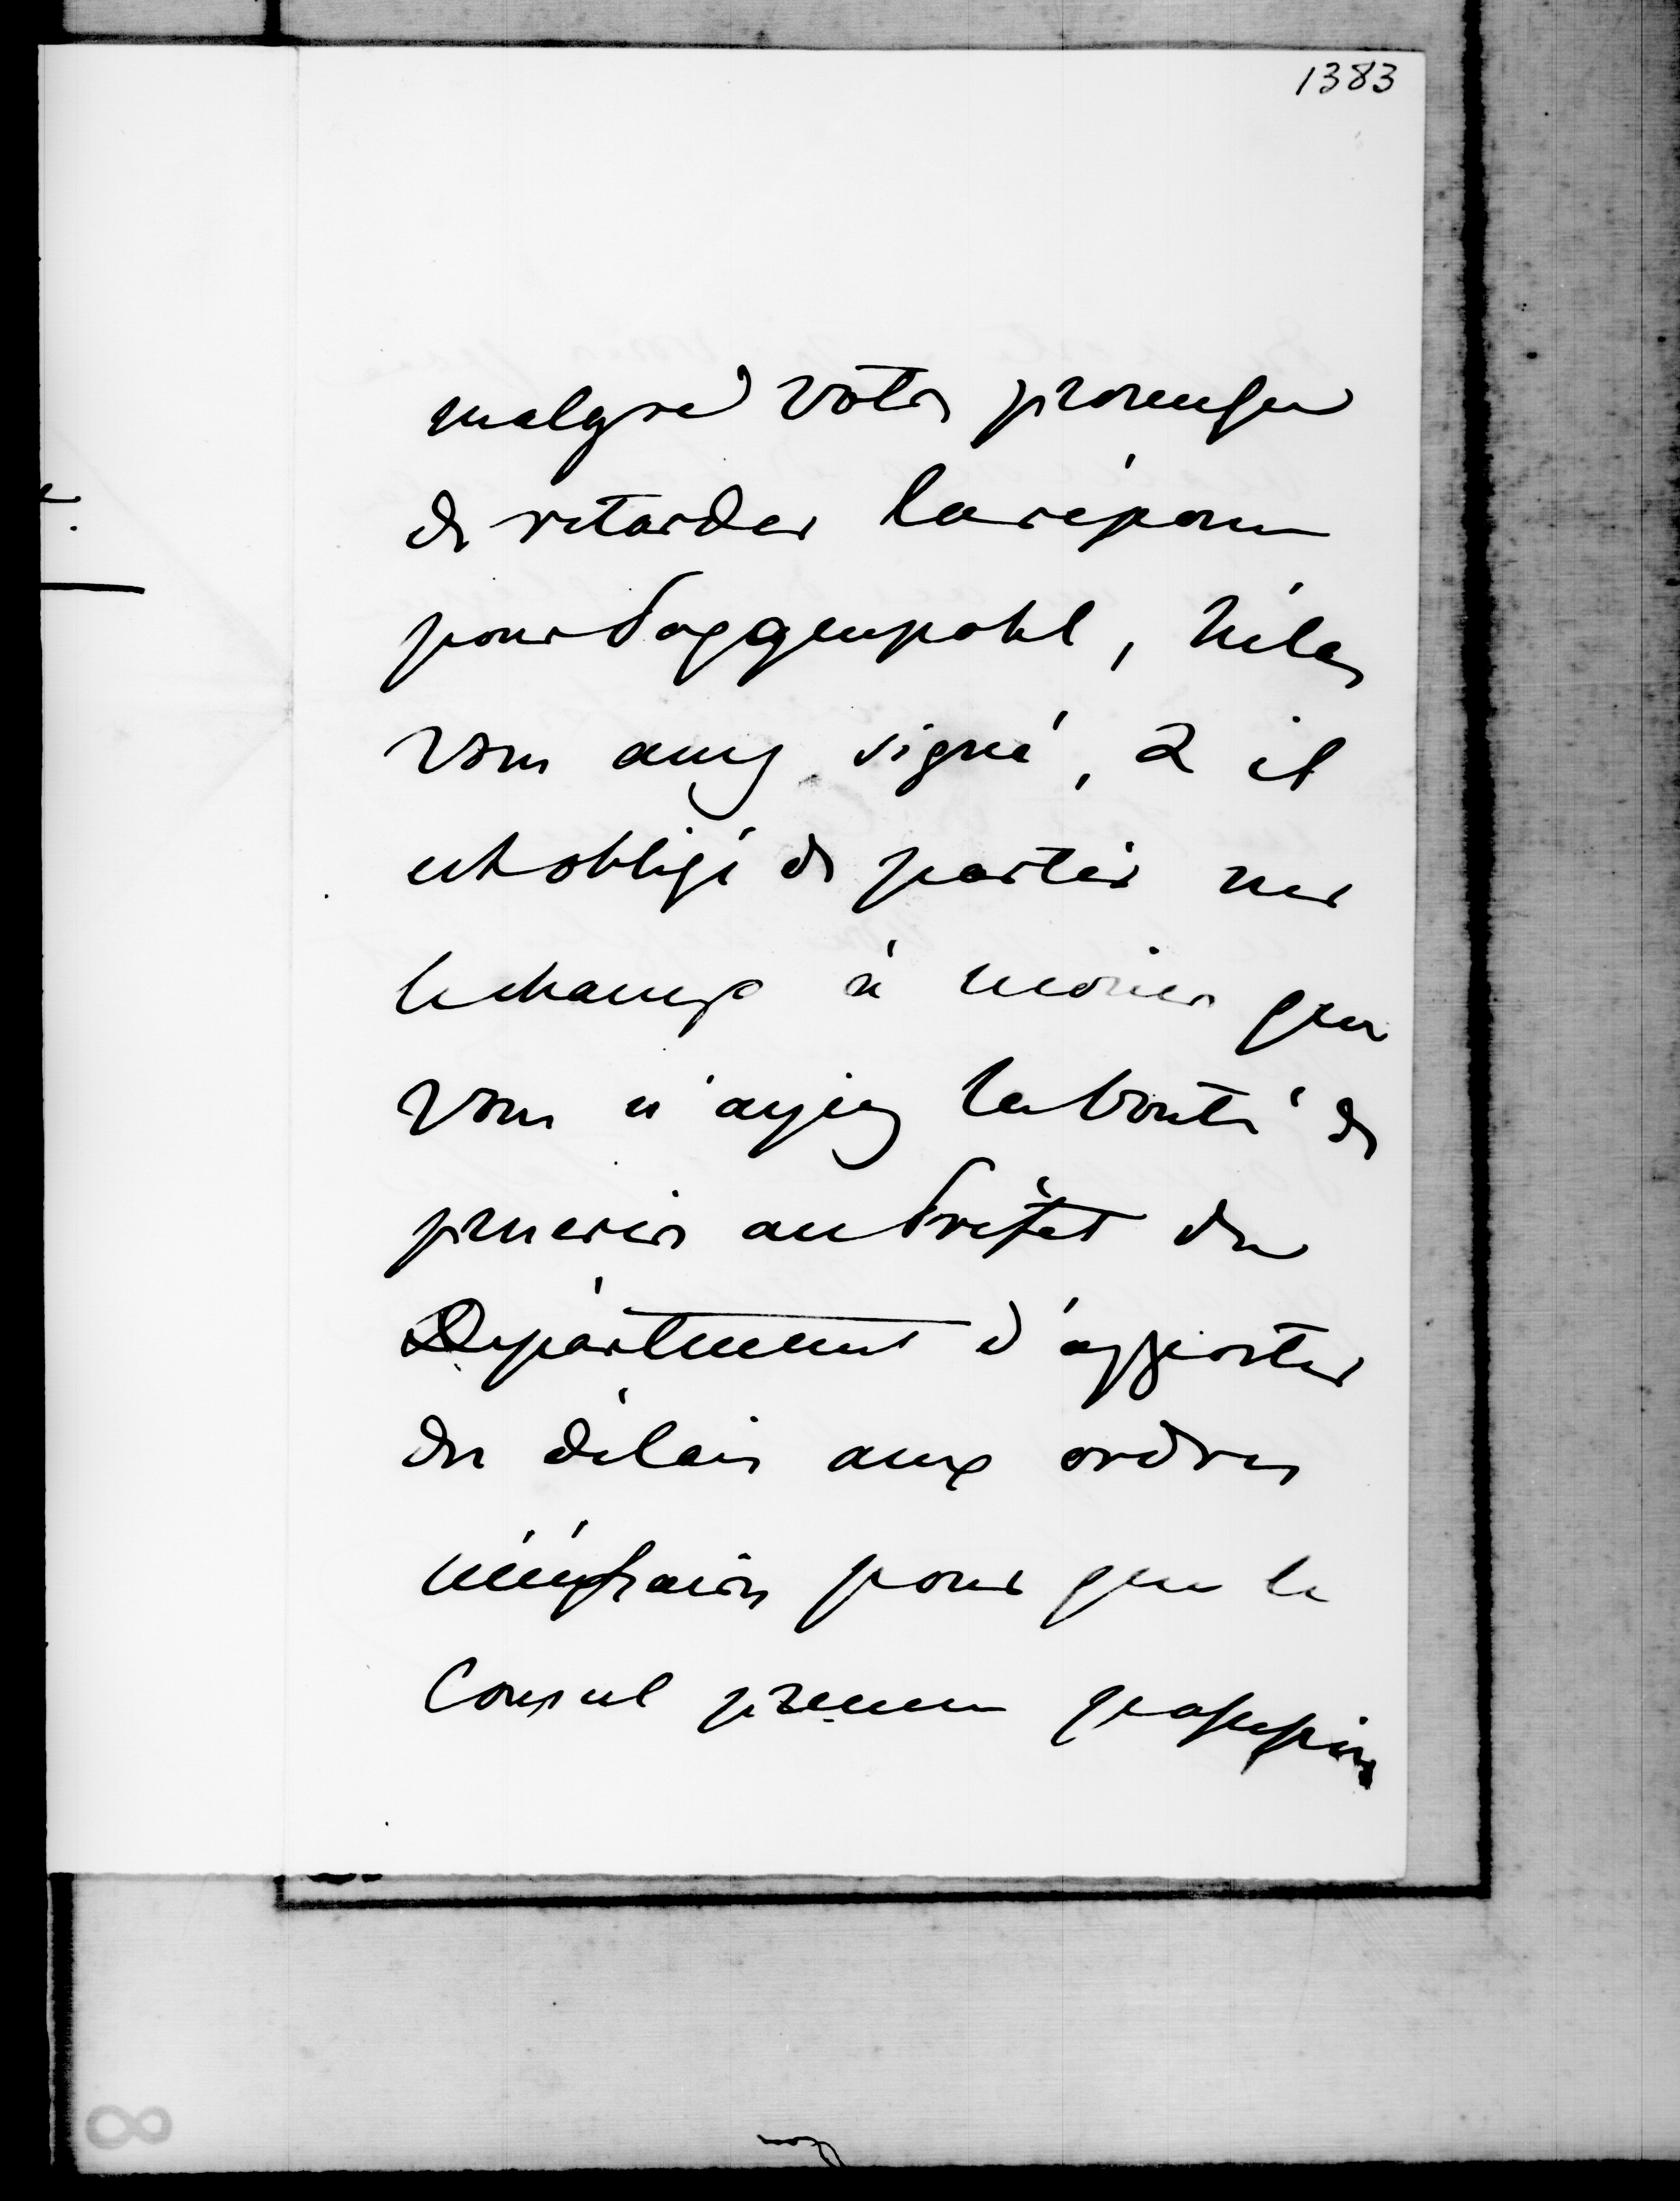 1383
malgré votre promesse
de retarder la réponse
pour Poggenpohl, hélas
vous avez signé, & il
est obligé de partir sur
le champ à moins que
vous n'ayiez la bonté de
prescrire au Préfet du
Département d'apporter
des délais aux ordres
nécessaires pour que le
Consul prenne possession